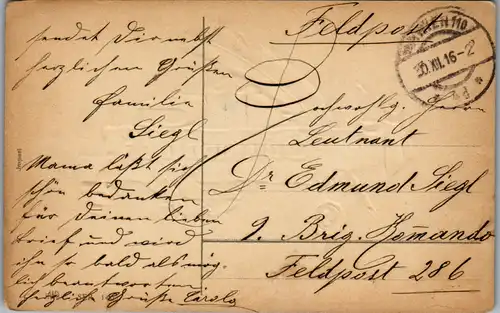 sendet Dir nebst
herzlichen Grüßen
Familie
Siegl
Mama läßt sich
schön bedanken
für Deinen lieben
Brief und wird
ihn so bald als mög-
lich beantworten
herzliche Grüße
Feldpost
WIEN 110
30.XII.16-2
Hochwohlg. Herrn
Leutnant
Dr Edmund Siegl
9. Brig. Kommando
Feldpost 286